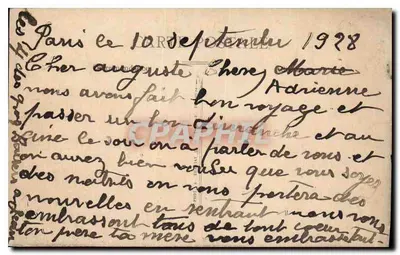 Paris le 10 septembre 1928
Cher auguste Chere Marie
Adrienne
nous avons fait bon voyage et
passer un bon dimanche et au
cine le soir on a parler de vous et
on aurez bien voulu que vous soyez
des notres en vous portera des
nouvelles en rentrant nous vous
embrassont tous de tout coeur
ton père ta mère vous embrasse
CPARAMA